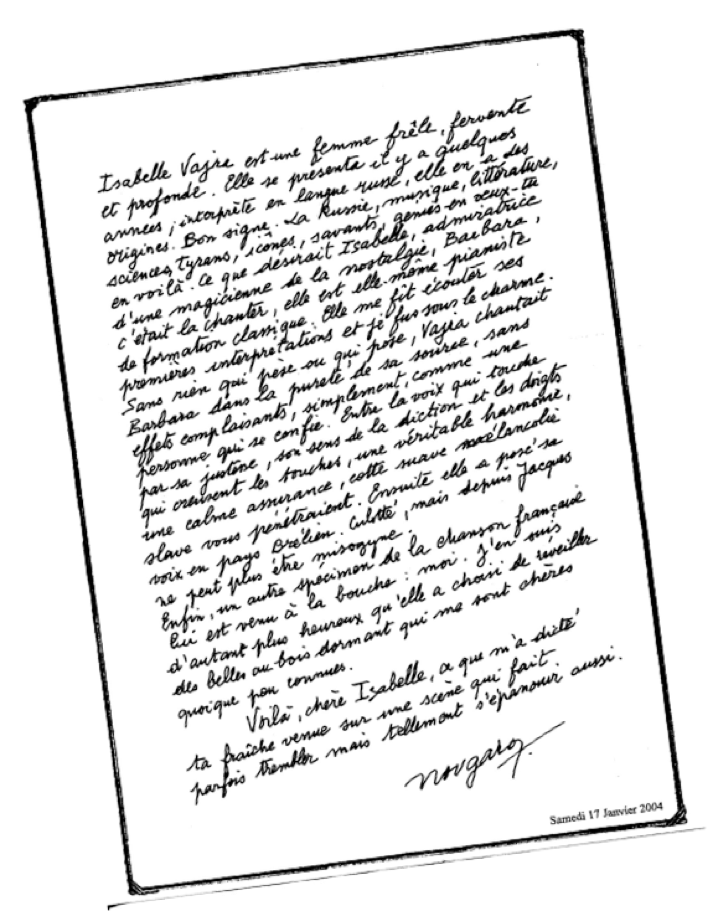 Isabelle Vajra est une femme frêle, fervente
et profonde. Elle se présenta il y a quelques
années, interprète en langue russe, elle en a des
origines. Bon signe. La Russie, musique, littérature,
sciences, tyrans, icônes, savants, génies en veux-tu
en voilà. Ce que désirait Isabelle, admiratrice
d'une magicienne de la nostalgie, Barbara,
c'était la chanter, elle est elle-même pianiste
de formation classique. Elle me fit écouter ses
premières interprétations et je fus sous le charme.
Sans rien qui pèse ou qui pose, Vajra chantait
Barbara dans la pureté de sa source, sans
effets complaisants, simplement, comme une
personne qui se confie. Entre la voix qui touche
par sa justesse, son sens de la diction et les doigts
qui creusent les touches, une véritable harmonie,
une calme assurance, cette suave mélancolie
slave vous pénétraient. Ensuite elle a posé sa
voix en pays Brélien. Culotté, mais depuis Jacques
ne peut plus être misogyne.
Enfin, un autre spécimen de la chanson française
lui est venu à la bouche : moi. J'en suis
d'autant plus heureux qu'elle a choisi de réveiller
des belles au bois dormant qui me sont chères
quoique peu connues.
Voilà, chère Isabelle, ce que m'a dicté
ta fraîche venue sur une scène qui fait
parfois trembler mais tellement s'épanouir aussi.
nougaro
Samedi 17 Janvier 2004